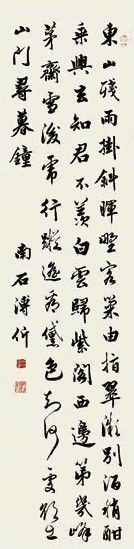 東山殘雨掛斜暉野客巢由指翠微別酒稍酣
乘興去知君不羨白雲歸紫閣西邊第幾峰
茅齋雪後虎行蹤遙看黛色知何處欲出
山門尋暮鐘 南石溥伒